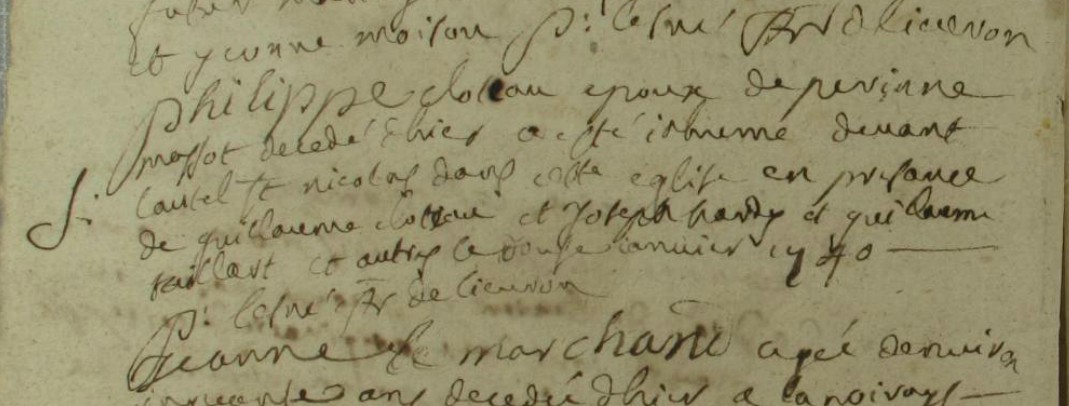 et yvonne moison p: lesné ptr de lieuron
philippe cloteau epoux de perinne
massot decedé d'hier a esté inhumé devant
S: lautel st nicolas dans cette eglise en presance
de guillaume cloteau et Joseph hardy et guillaume
taillart et autres le douse janvier 1740
p: lesné ptr de lieuron
jeanne le marchand agée denuiron
ans decedée d'hier a la noirays